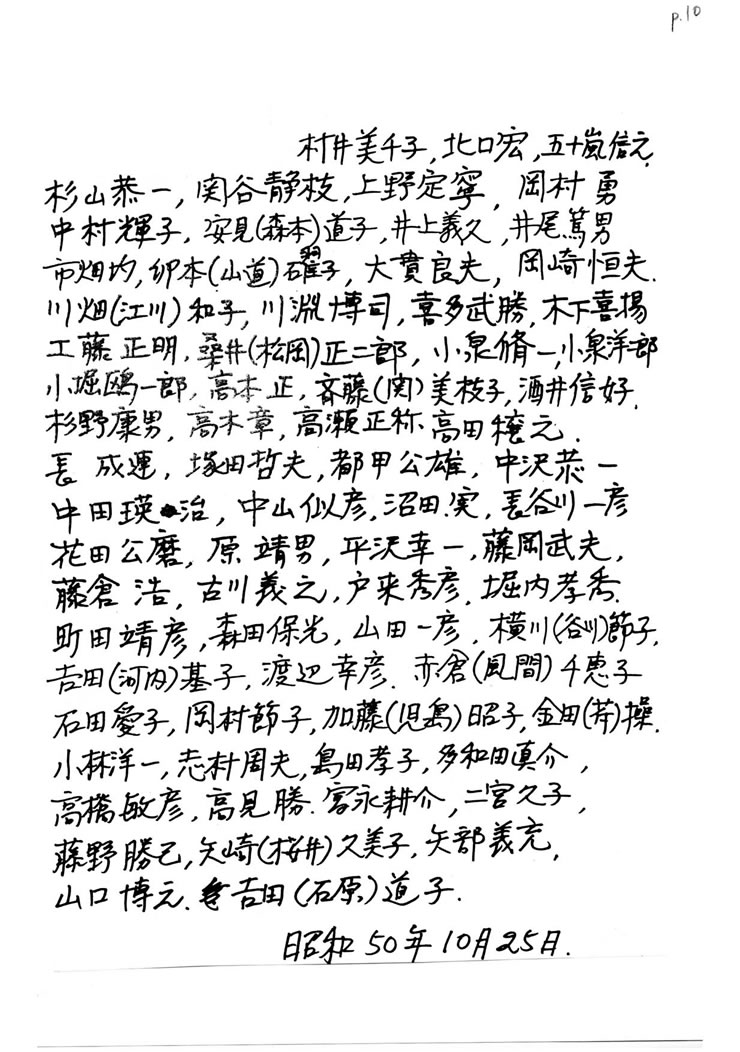 p.10
村井美千子, 北口宏, 五十嵐信元,
杉山恭一, 関谷静枝, 上野定寧, 岡村 勇
中村輝子, 安見(森本)道子, 井上義久, 井尾篤男
市畑均, 卯本(山道)子, 大貫良夫, 岡崎恒夫.
川畑(江川)和子, 川淵博司, 喜多武勝, 木下喜揚
工藤正明, 桑井(松岡)正二郎, 小泉脩一, 小泉洋郎
小堀鴎一郎, 高本 正, 斉藤(関)美枝子, 酒井信好,
杉野康男, 高木章, 高瀬正称 高田穣元.
長 成運, 塚田哲夫, 都甲公雄, 中沢恭一
中田瑛治, 中山似彦, 沼田実, 長谷川一彦
花田公磨, 原 靖男, 平沢幸一, 藤岡武夫,
藤倉 浩, 古川義之, 戸来秀彦, 堀内孝
町田靖彦, 森田保光, 山田一彦, 横川(谷川)節子,
吉田(河内)基子, 渡辺幸彦. 赤倉(風間)千恵子
石田愛子, 岡村節子, 加藤(児島)昭子, 金田(芹)操.
小林洋一, 志村周夫, 島田孝子, 多和田真介,
高橋敏彦, 高見勝. 富永耕介, 二宮久子,
藤野勝己, 矢崎(桜井)久美子, 矢部義充,
山口博元. 吉田(石原)道子.
昭和50年10月25日.